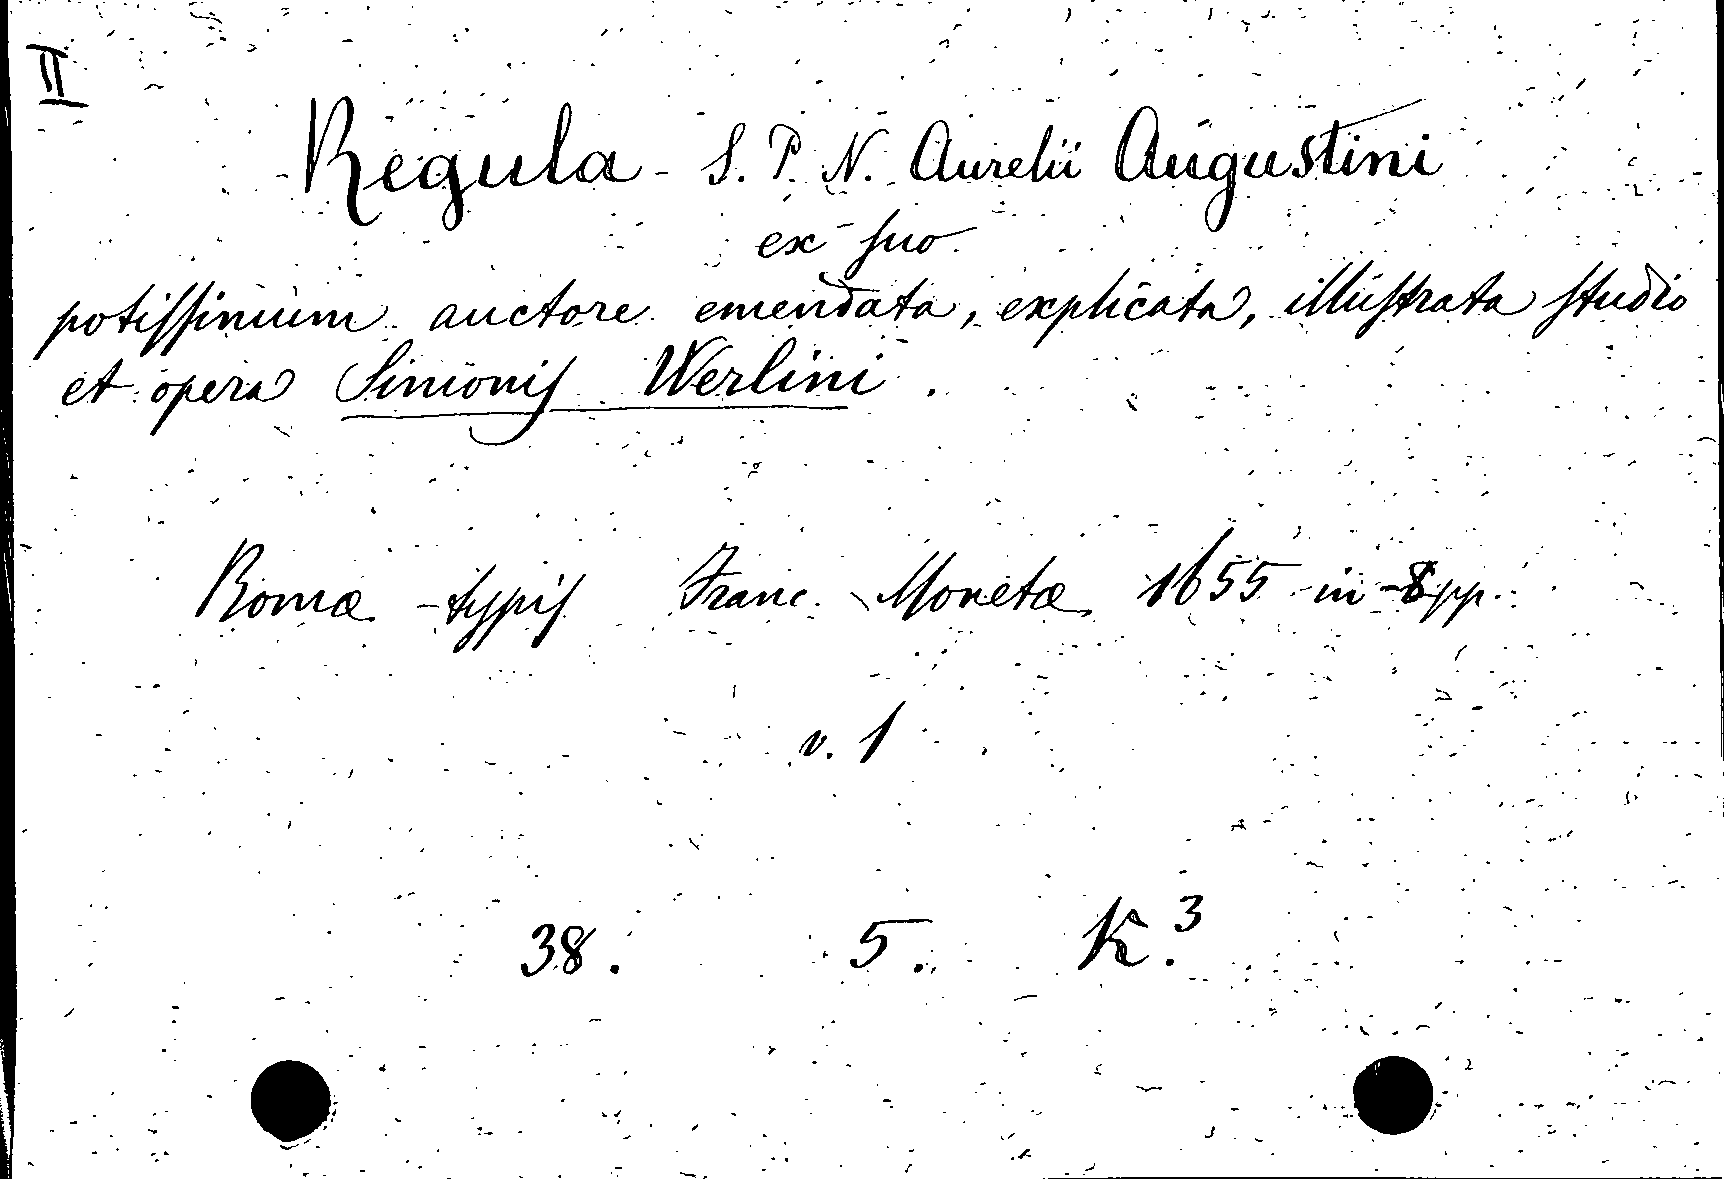 II
Regula S. P. N. Aurelii Augustini
ex suo
potissimum auctore emendata, explicata, illustrata studio
et opera Simonis Werlini.
Romæ typis Franc. Monetæ 1655 in 8 pp.
v. 1
38. 5. K.3